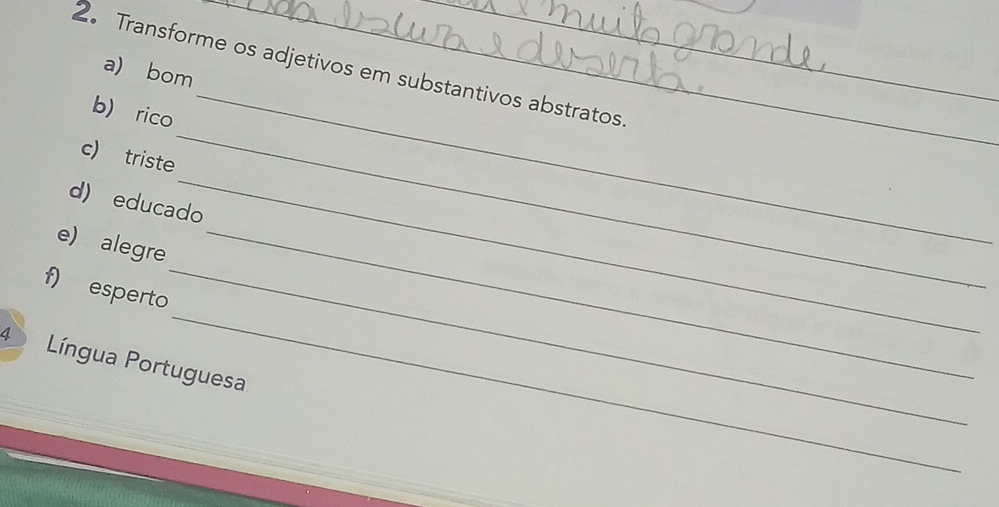 muito grande.
escura e deserta.
2. Transforme os adjetivos em substantivos abstratos.
a) bom
b) rico
c) triste
d) educado
e) alegre
f) esperto
4 Língua Portuguesa